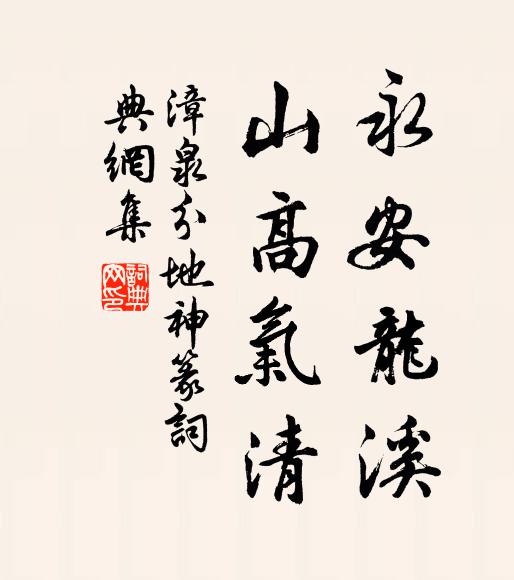 永安龍溪
山高氣清
漳泉分地神篆詞
典網集
詞典網印